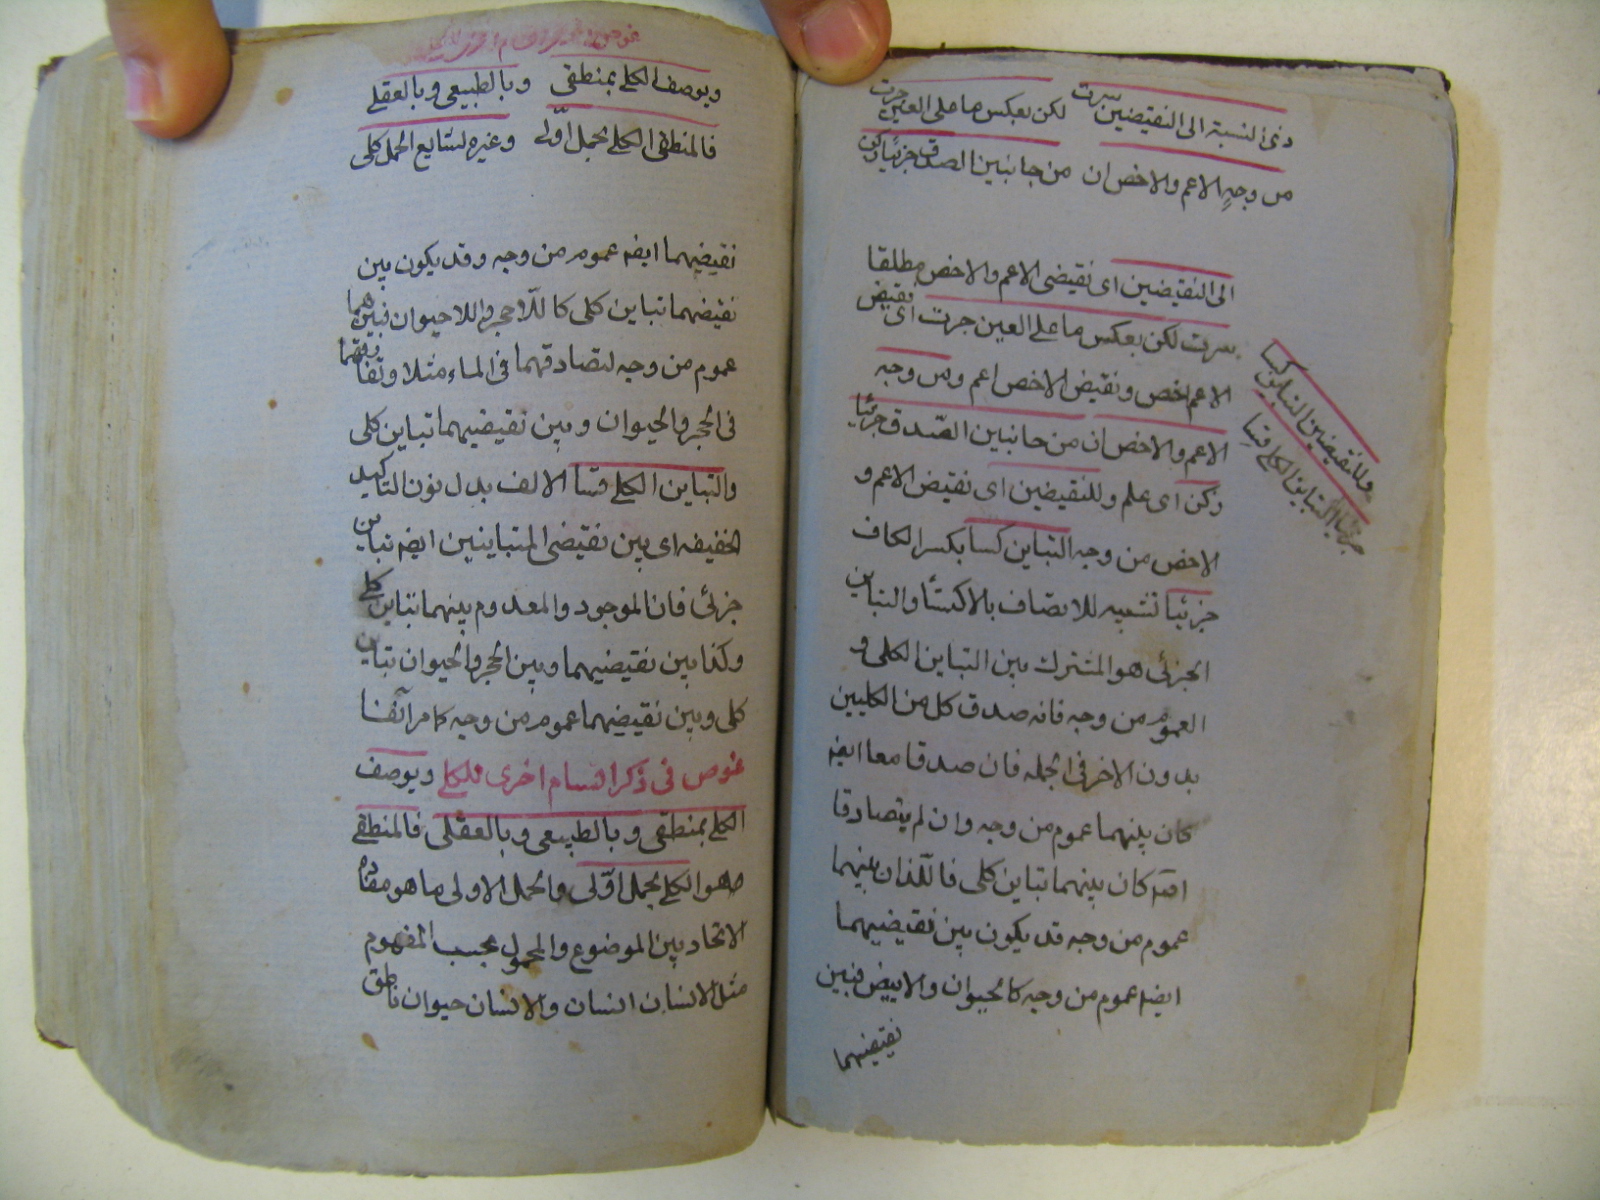 ذى النسبة الى النقيضين سرت لكن بعكس ما على العين جرت
من وجهٍ الاعم والاخص ان من جانبين الصدق جزئيا زكن
الى النقيضين اى نقيضى الاعم والاخص مطلقا
سرت لكن بعكس ما على العين جرت اى نقيض
الاعم اخص ونقيض الاخص اعم ومن وجه
الاعم والاخص ان من جانبين الصّدق جزئيّا
زكن اى علم وللنقيضين اى نقيض الاعم و
الاخص من وجه التباين كسا بكسر الكاف
جزئيا تشبيه للاتصاف بالاكتسا والتباين
الجزئى هو المشترك بين التباين الكلى و
العموم من وجه فانه صدق كل من الكليين
بدون الاخر فى الجمله فان صدقا معا ايضا
كان بينهما عموم من وجه وان لم يتصادقا
كان بينهما تباين كلى فاللّذان بينهما
عموم من وجه قد يكون بين نقيضيهما
ايضا عموم من وجه كالحيوان والابيض فبين
نقيضيهما
وللنقيضين التباين كسا
جزئيّا التباين الكلى قسا
ويوصف الكلى بمنطقى وبالطبيعى وبالعقلى
فالمنطقى الكلى بحمل اوّلى وغيره لشايع الحمل كلى
نقيضيهما ايضا عموم من وجه وقد يكون بين
نقيضهما تباين كلى كاللّا حجر واللا حيوان فبينهما
عموم من وجه لتصادقهما فى الماء مثلا وتفارقهما
فى الحجر والحيوان وبين نقيضيهما تباين كلى
والتباين الكلى قسا الالف بدل نون التاكيد
الخفيفه اى بين نقيضى المتباينين ايضا تباين
جزئى فان الموجود والمعدوم بينهما تباين كلى
وكذا بين نقيضيهما وبين الحجر والحيوان تباين
كلى وبين نقيضهما عموم من وجه كامر آنفا
غوص فى ذكر اقسام اخرى للكلى ويوصف
الكلى بمنطقى وبالطبيعى وبالعقلى فالمنطقى
هو الكلى بحمل اوّلى والحمل الاولى ما هو مفاده
الاتحاد بين الموضوع والمحمول بحسب المفهوم
مثل الانسان انسان والانسان حيوان ناطق